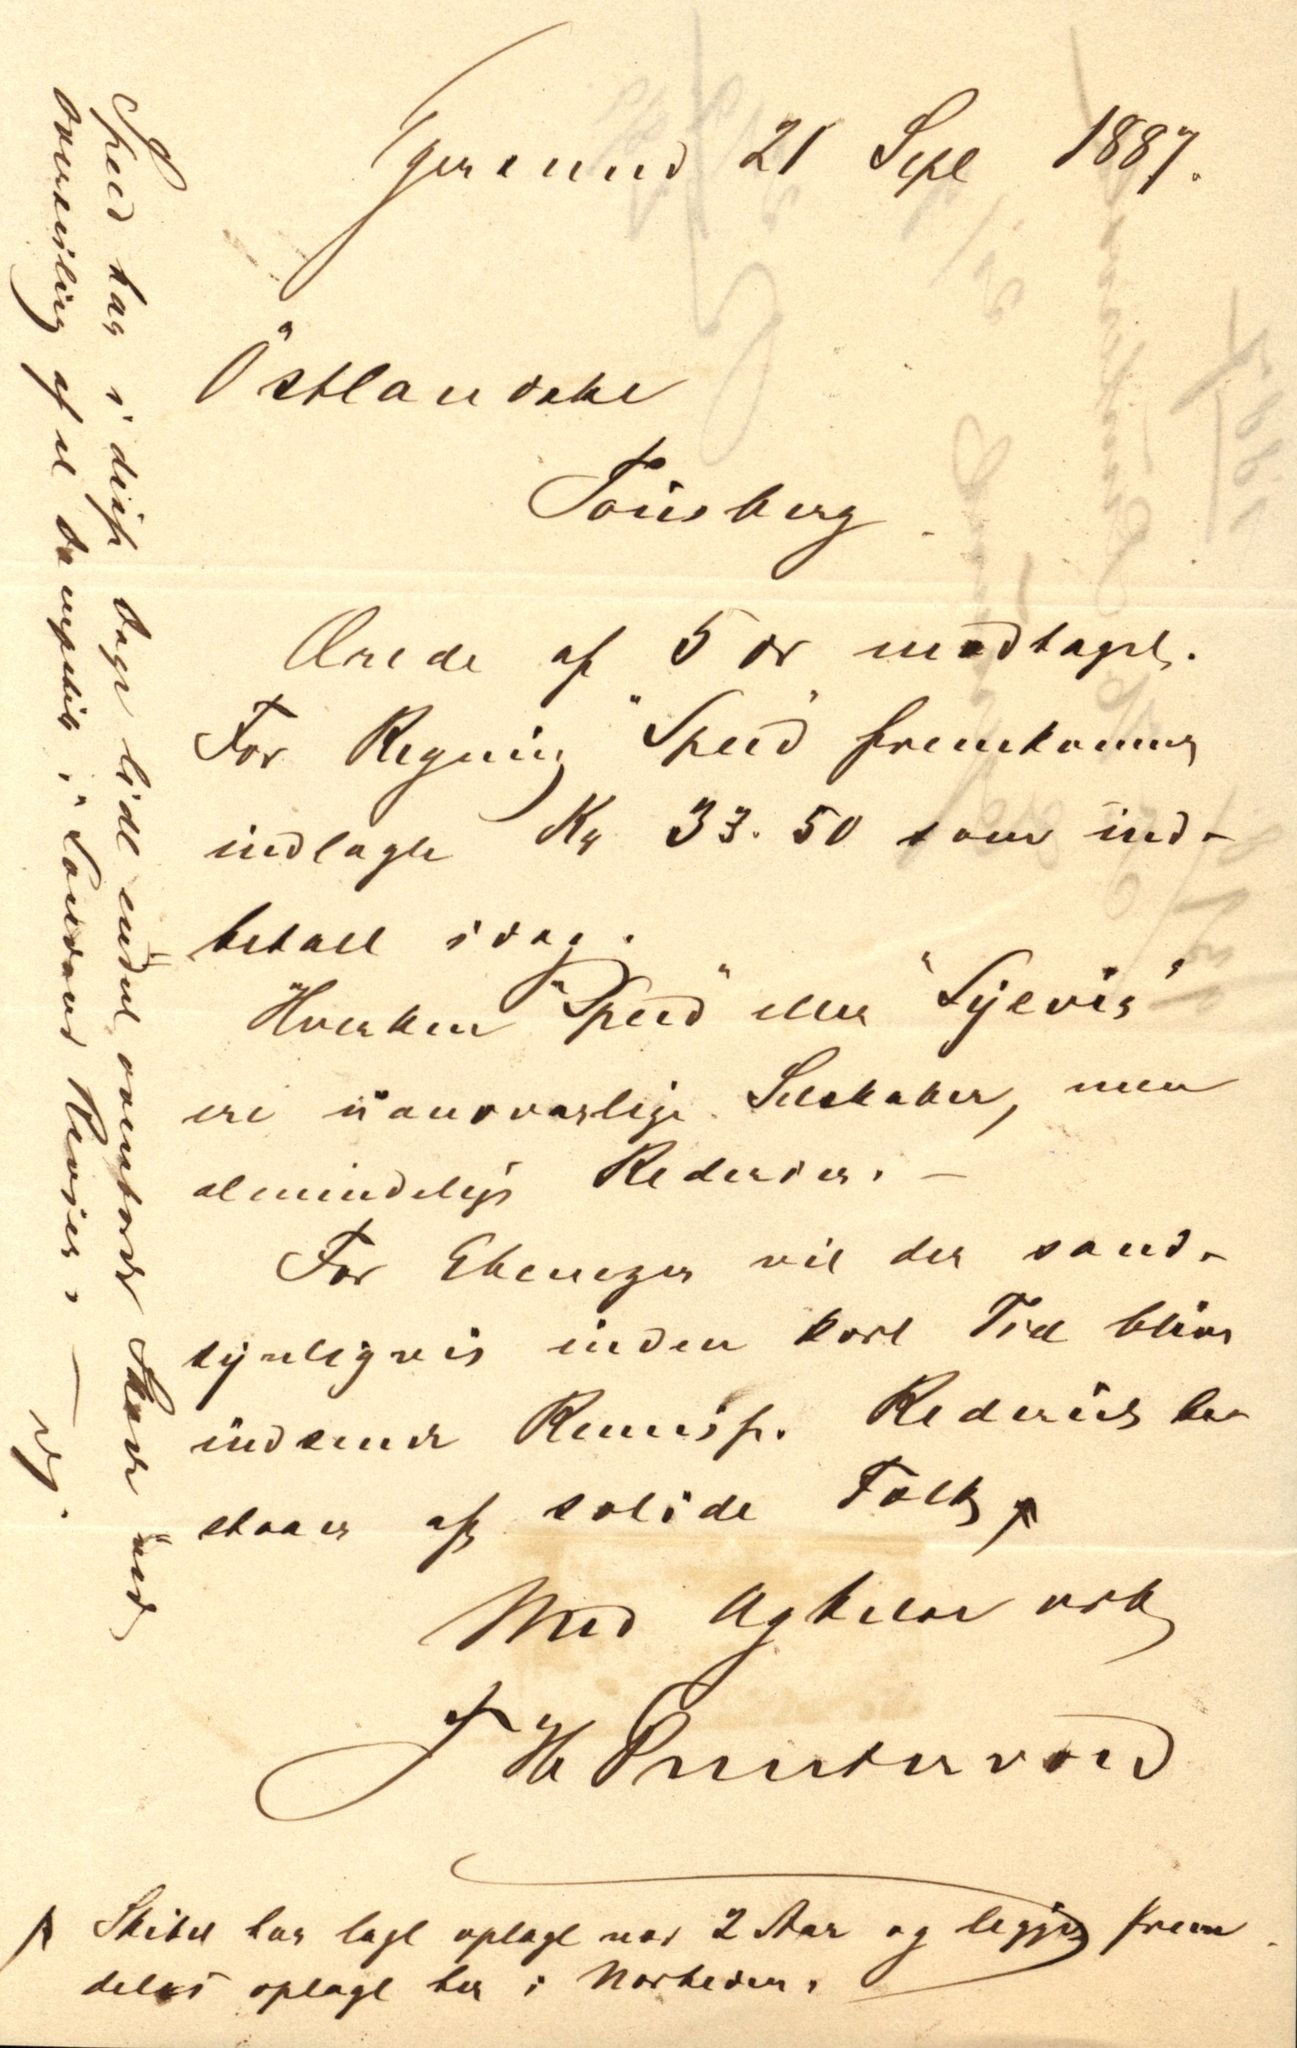 Egersund 21 Sept 1887.
Östlandske
Tönsberg.
Ærede af 5 ds modtaget.
For Regning "Speed" fremkommer
indlagte Kr 33.50 som ind-
betalt idag.
Hverken "Speed" eller "Sylvia"
ere uansvarlige Selskaber, men
almindelige Rederier. —
For Ebenezer vil der sand-
synligvis inden kort Tid blive
indsendt Remisse. Rederiet be-
staaer af solide Folk
Med Agtelse
J H Puntervold
Skibet har lagt oplagt 2 Aar og ligger frem
deles oplagt her i Norheden.
Speed har i disse Dage lidt endel Skade ved
Paaseiling af et Dampskib i Revier. —